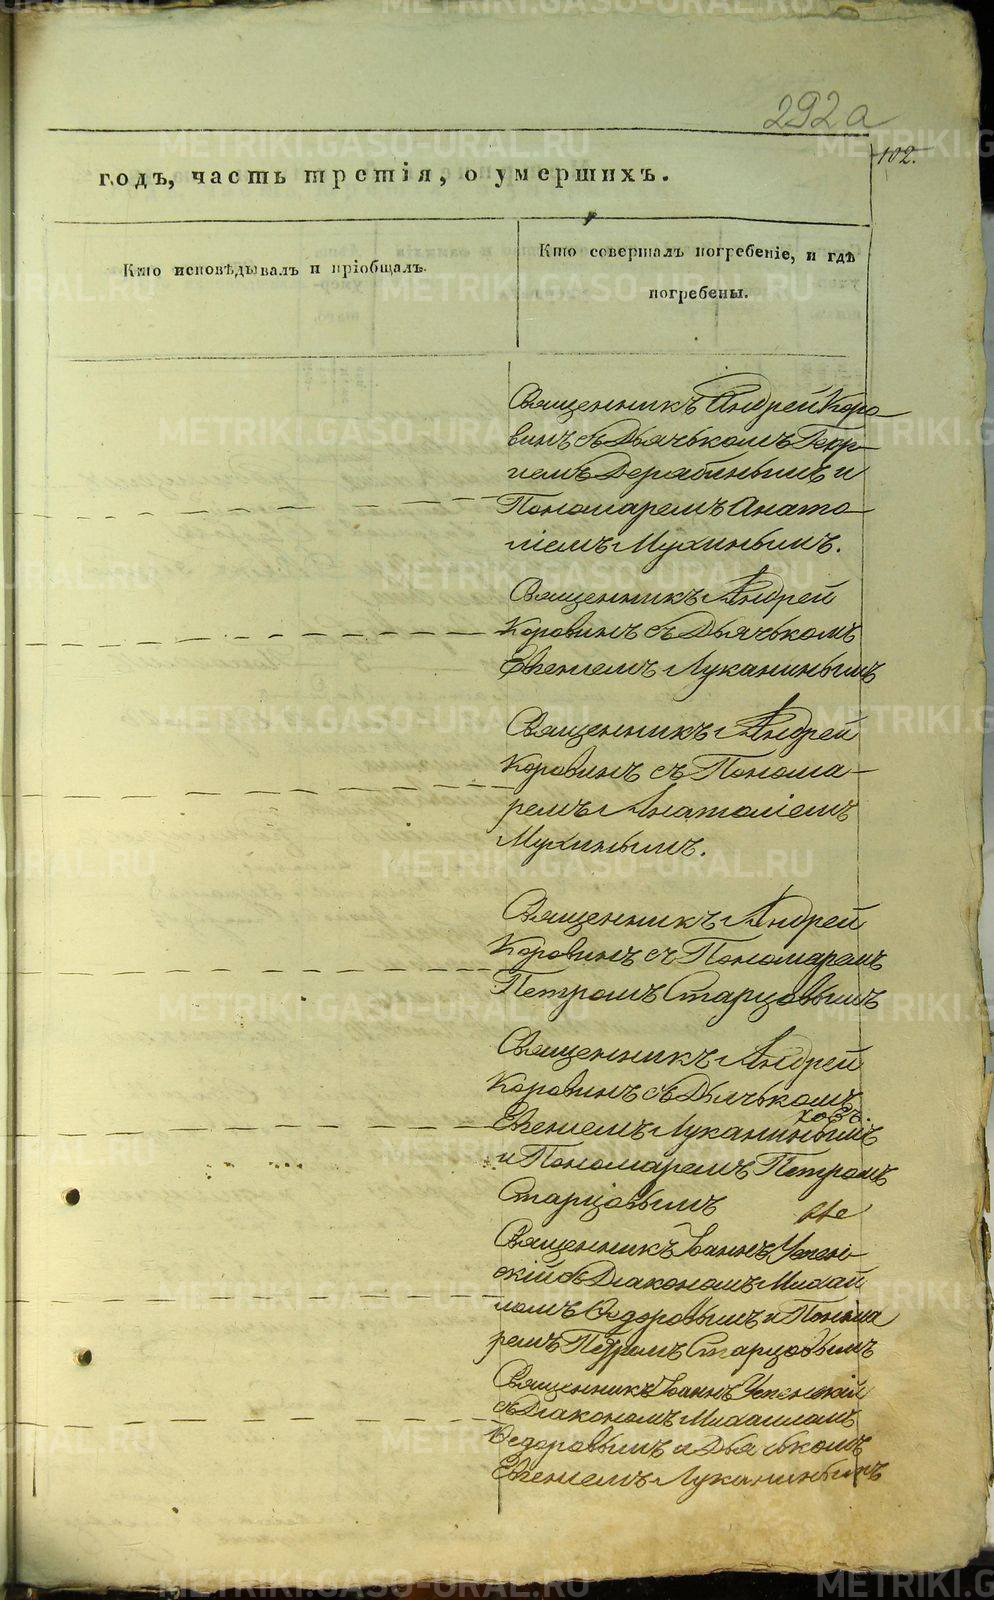 292а
102.
годъ, часть третiя, о умершихъ.
Кто исповѣдывалъ и прiобщалъ.
Кто совершалъ погребенiе, и гдѣ
погребены.
Священникъ Андрей Коро
винъ съ Дьячькомъ Геор
гiемъ Дерябинымъ и
Пономаремъ Анато
лiемъ Мухинымъ.
Священникъ Андрей
Коровинъ съ Дьячькомъ
Евгенiемъ Луканинымъ
Священникъ Андрей
Коровинъ съ Понома
ремъ Анатолiемъ
Мухинымъ.
Священникъ Андрей
Коровинъ съ Пономаремъ
Петромъ Старцовымъ
Священникъ Андрей
Коровинъ съ Дьячькомъ
Евгенiемъ Луканинымъ
и Пономаремъ Петромъ
Старцовымъ
Священникъ Iоаннъ Успен
скiй съ Дiакономъ Михаи
ломъ Федоровымъ и Понома
ремъ Петромъ Старцовымъ
Священникъ Iоаннъ Успенскiй
съ Дiакономъ Михаиломъ
Федоровымъ и Дьячькомъ
Евгенiемъ Луканинымъ
METRIKI.GASO-URAL.RU